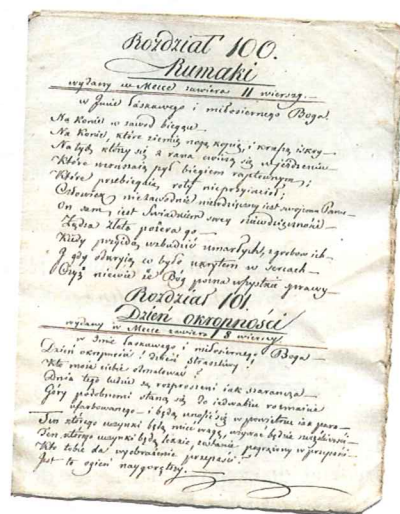 Rozdział 100.
Rumaki
wydany w Mecce zawiera 11 wierszy.
w Imie łaskawego i miłosiernego Boga
Na konie w zawód biegące
Na konie, które ziemię nogą kopią, i krzeszą iskry
Na tych, którzy się z rana ćwiczą
Które wznaszają pył biegiem raptownym;
Które przebiegają roty nieprzyjaciół;
Człowiek niezawodnie niewdzięczny jest swojemu Panu
On sam jest świadkiem swey niewdzięczności
Żądza złota pożera go
Kiedy przyjdą wzbudzić umarłych z grobów ich
I gdy odkryją co było ukrytem w sercach
Czyż niewie że Bóg pozna wszystkie sprawy
Rozdział 101.
Dzień okropności
wydany w Mecce zawiera 8 wierszy
w Imie łaskawego i miłosiernego Boga
Dzień okropności! dzień straszliwy!
Kto może ciebie odmalować?
Dnia tego ludzie są rozproszeni jak szarańcza
Góry podobnemi staną się do jedwabiu rozmaicie
ufarbowanego i będą unosić się w powietrzu
Ten którego uczynki będą mieć wagę, używać będzie szczęśliwości
Ten, którego uczynki będą lekkie, zostanie pogrążony w przepaści
Kto tobie da wyobrażenie przepaści?
Jest to ogień naygorętszy.